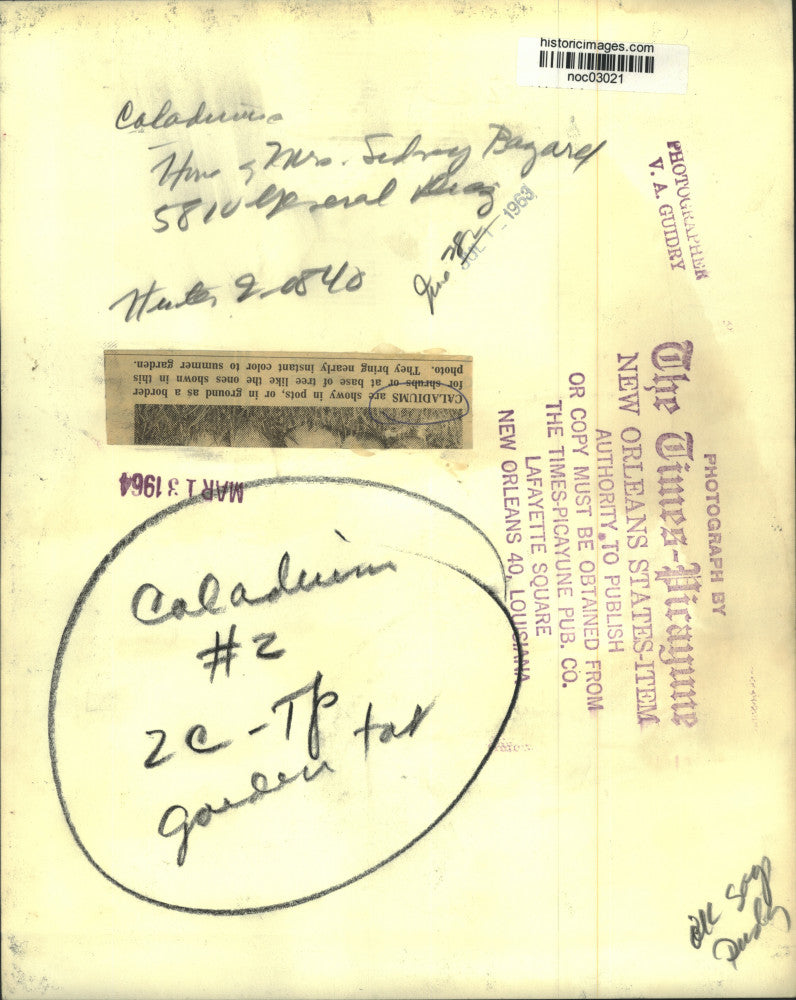 historicimages.com
noc03021
Caladiums
Home of Mrs. Sidney Bazard
5810 General Diaz
June 28
JUL 1 - 1963
Hunter 2-0840
PHOTOGRAPHER
V. A. GUIDRY
CALADIUMS are showy in pots, or in ground as a border
for shrubs or at base of tree like the ones shown in this
photo. They bring nearly instant color to summer garden.
MAR 13 1964
PHOTOGRAPH BY
The Times-Picayune
NEW ORLEANS STATES-ITEM
AUTHORITY TO PUBLISH
OR COPY MUST BE OBTAINED FROM
THE TIMES-PICAYUNE PUB. CO.
LAFAYETTE SQUARE
NEW ORLEANS 40, LOUISIANA
Caladium
#2
2C - TP
garden tab